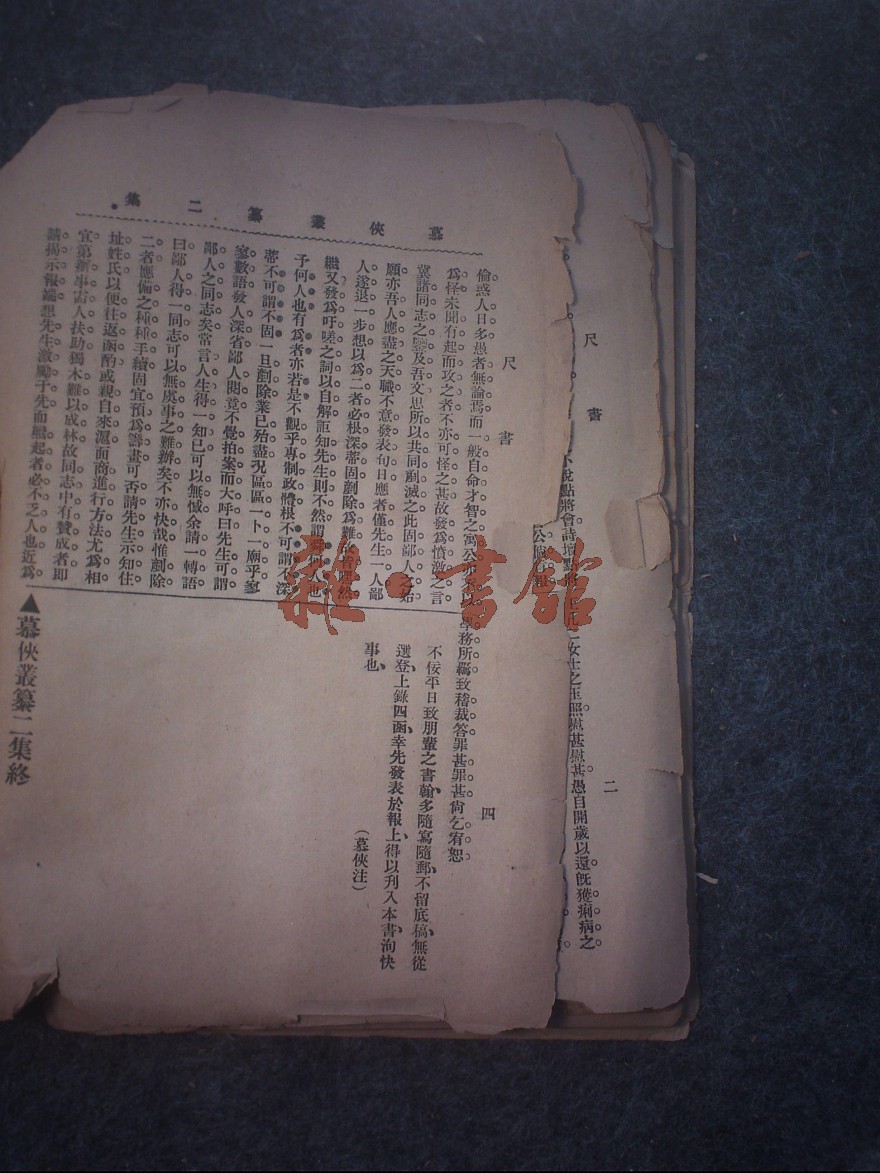 慕俠叢纂二集
尺書
四
倫惑人日多愚者無論焉而一般自命才智之
爲怪未聞有起而攻之者不亦可怪之甚故發爲憤激之言
冀諸同志之鑒及吾文思所以共同剷滅之此固鄙人之始
願亦吾人應盡之天職不意發表旬日應者僅先生一人鄙
人遂退一步想以爲二者必根深蒂固剷除爲難
繼又發爲吁嗟之詞以自解詎知先生則不然謂舜何人也
予何人也有爲者亦若是不觀乎專制政體根不可謂不深
蒂不可謂不固一旦剷除業已殆盡況區區一卜一廟乎寥
寥數語發人深省鄙人閱竟不覺拍案而大呼曰先生可謂
鄙人之同志矣常言人生得一知己可以無憾余請一轉語
曰鄙人得一同志可以無虞事之難辦矣不亦快哉惟剷除
二者應備之種種手續固宜預爲籌畫可否請先生示知住
址姓氏以便往返函酌或親自來滬面商進行方法尤爲相
宜第辦事需人扶助獨木難以成林故同志中有贊成者即
請揭示報端想先生激勵于先而繼起者必不乏人也近爲
學務所羈致稽裁答罪甚罪甚尚乞宥恕
不佞平日致朋輩之書翰多隨寫隨郵不留底稿無從
選登上錄四函幸先發表於報上得以刋入本書洵快
事也
(慕俠注)
▲慕俠叢纂二集終
尺書
二
女士之玉照慰甚慰甚愚自開歲以還旣獲痢病之
雜·書館